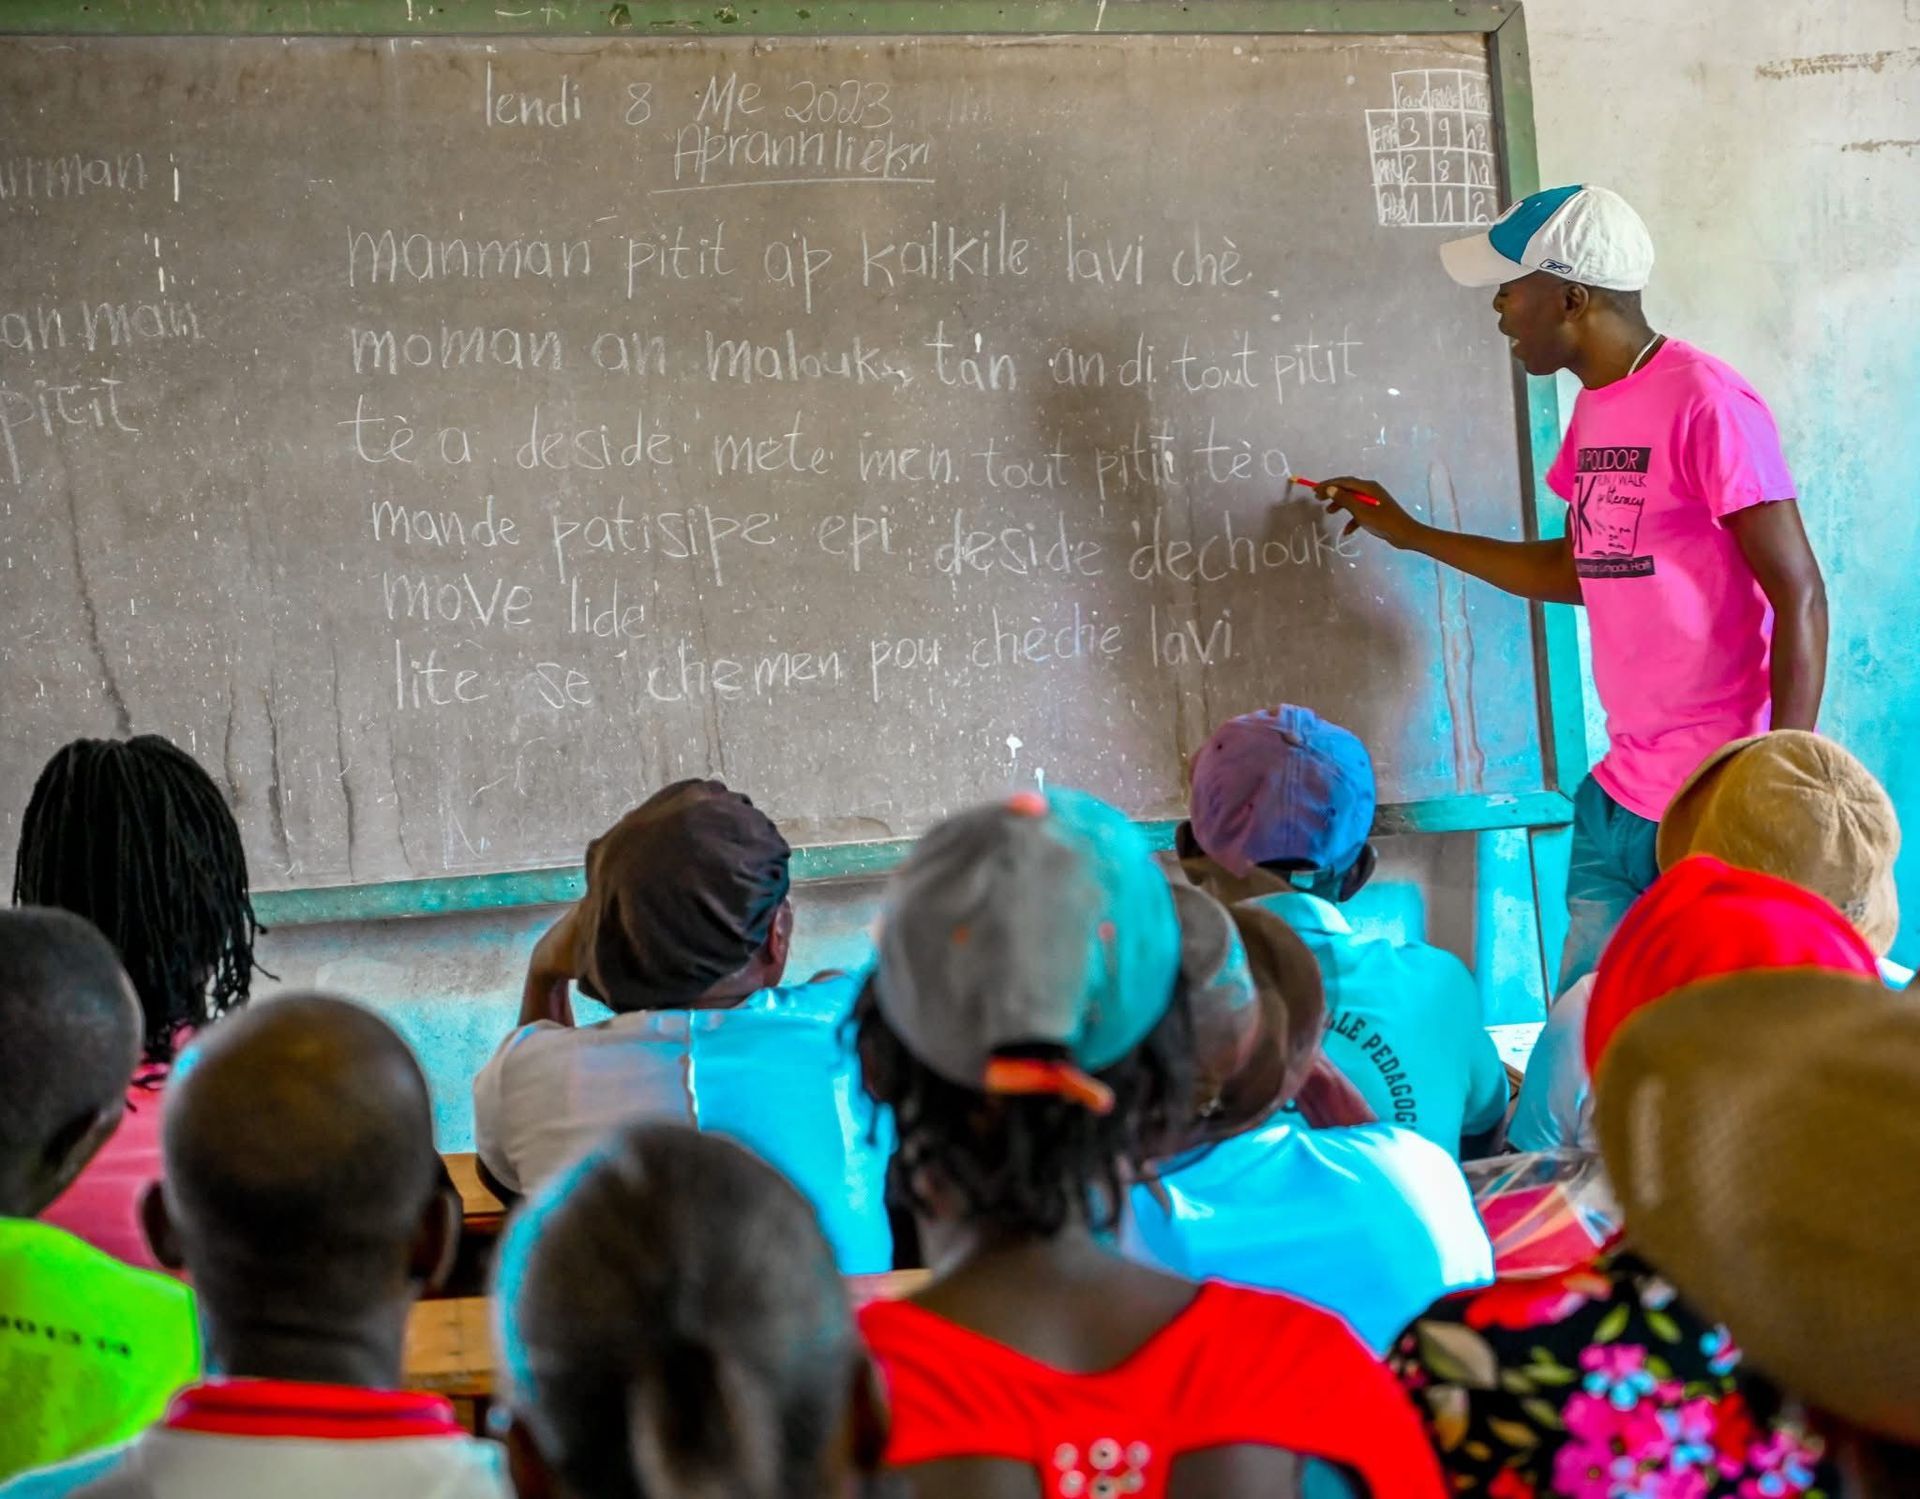 lendi 8 Me 2023
Aprann li ekri
manman pitit ap kalkile lavi chè.
moman an malouk, tan an di tout pitit
tè a deside mete men. tout pitit tè a
mande patisipe epi deside dechouke
move lide
lite se chemen pou chèche lavi.
man
an man
pitit
3 9 12
2 8
1 1 2
POLIDOR
RUN/WALK
for literacy
5K
LLE PEDAGOG